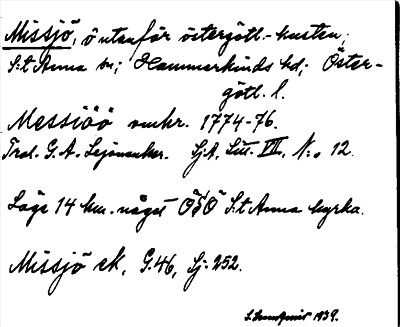 Missjö, ö utanför östergötl.-kusten;
S:t Anna sn; Hammarkinds hd; Öster-
götl. l.
Messiöö omkr. 1774-76.
Trol. G. A. Lejonanckr. SjA, Litt. VII, N:o 12.
Läge 14 km. något OSO S:t Anna kyrka.
Missjö ek, G.46, Sj: 252.
1939.